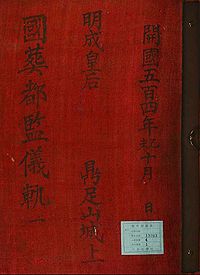 開國五百四年乙未十月 日
明成皇后 鼎足山城上
國葬都監儀軌一